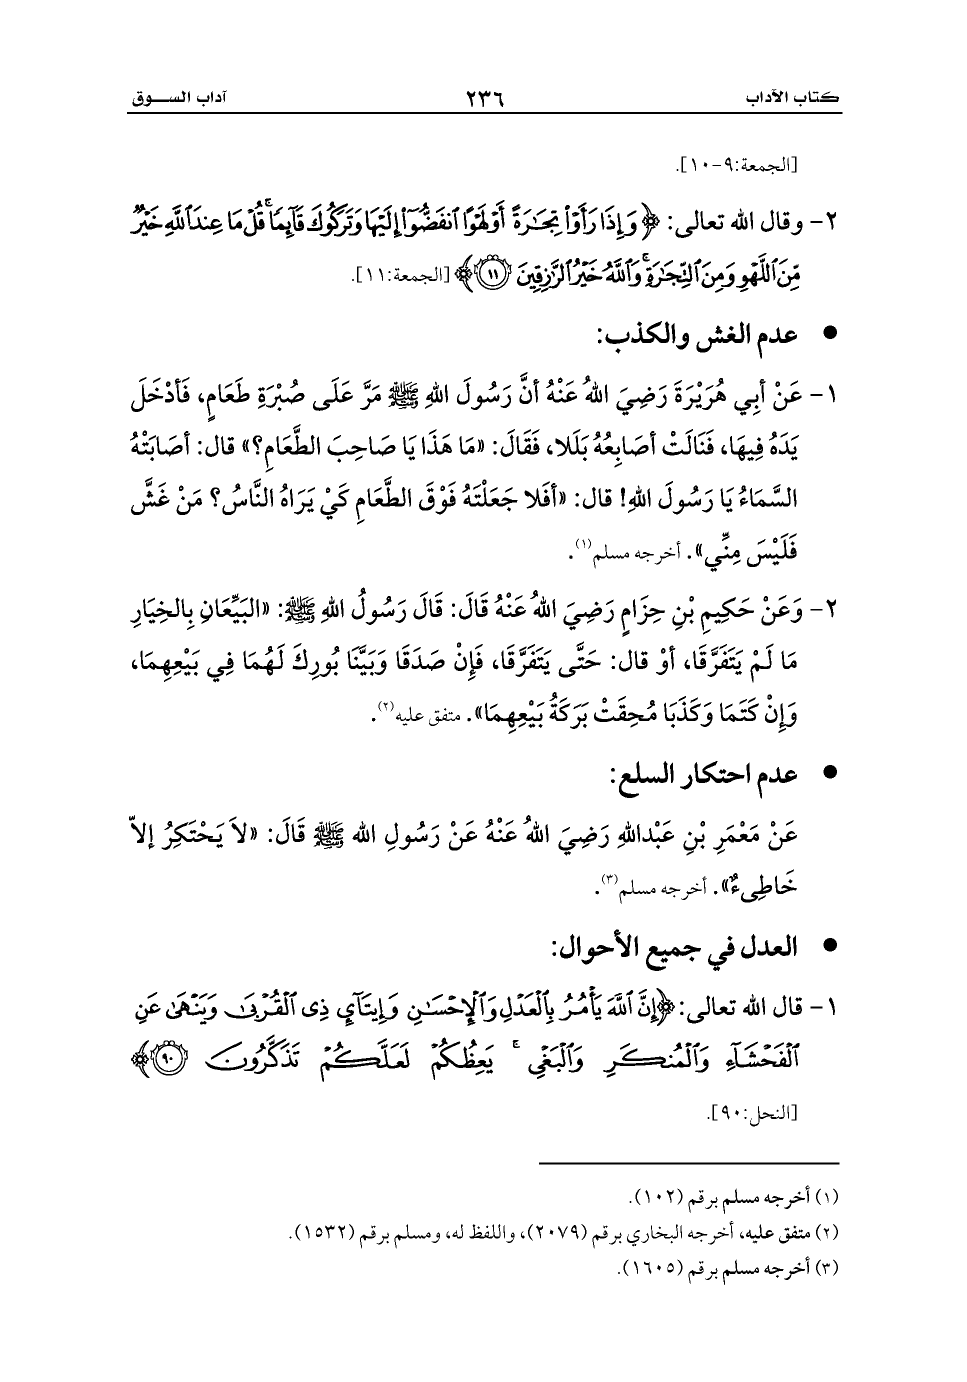 كتاب الآداب ٢٣٦ آداب الســـوق
[الجمعة:٩-١٠].
٢- وقال الله تعالى: ﴿وَإِذَا رَأَوْاْ تِجَٰرَةً أَوْ لَهْوًا ٱنفَضُّوٓاْ إِلَيْهَا وَتَرَكُوكَ قَآئِمًاۚ قُلْ مَا عِندَ ٱللَّهِ خَيْرٌ
مِّنَ ٱللَّهْوِ وَمِنَ ٱلتِّجَٰرَةِۚ وَٱللَّهُ خَيْرُ ٱلرَّٰزِقِينَ ١١﴾ [الجمعة:١١].
• عدم الغش والكذب:
١- عَنْ أبِي هُرَيْرَةَ رَضِيَ اللهُ عَنْهُ أنَّ رَسُولَ اللهِ ﷺ مَرَّ عَلَى صُبْرَةِ طَعَامٍ، فَأدْخَلَ
يَدَهُ فِيهَا، فَنَالَتْ أصَابِعُهُ بَلَلا، فَقَالَ: «مَا هَذَا يَا صَاحِبَ الطَّعَامِ؟» قال: أصَابَتْهُ
السَّمَاءُ يَا رَسُولَ اللهِ! قال: «أفَلا جَعَلْتَهُ فَوْقَ الطَّعَامِ كَيْ يَرَاهُ النَّاسُ؟ مَنْ غَشَّ
فَلَيْسَ مِنِّي». أخرجه مسلم(١).
٢- وَعَنْ حَكِيمِ بْنِ حِزَامٍ رَضِيَ اللهُ عَنْهُ قَالَ: قَالَ رَسُولُ اللهِ ﷺ: «البَيِّعَانِ بِالخِيَارِ
مَا لَمْ يَتَفَرَّقَا، أوْ قال: حَتَّى يَتَفَرَّقَا، فَإِنْ صَدَقَا وَبَيَّنَا بُورِكَ لَهُمَا فِي بَيْعِهِمَا،
وَإِنْ كَتَمَا وَكَذَبَا مُحِقَتْ بَرَكَةُ بَيْعِهِمَا». متفق عليه(٢).
• عدم احتكار السلع:
عَنْ مَعْمَرِ بْنِ عَبْدِاللهِ رَضِيَ اللهُ عَنْهُ عَنْ رَسُولِ الله ﷺ قَالَ: «لاَ يَحْتَكِرُ إلاّ
خَاطِىءٌ». أخرجه مسلم(٣).
• العدل في جميع الأحوال:
١- قال الله تعالى: ﴿إِنَّ ٱللَّهَ يَأْمُرُ بِٱلْعَدْلِ وَٱلْإِحْسَٰنِ وَإِيتَآيِٕ ذِى ٱلْقُرْبَىٰ وَيَنْهَىٰ عَنِ
ٱلْفَحْشَآءِ وَٱلْمُنكَرِ وَٱلْبَغْىِۚ يَعِظُكُمْ لَعَلَّكُمْ تَذَكَّرُونَ ٩٠﴾
[النحل:٩٠].
(١) أخرجه مسلم برقم (١٠٢).
(٢) متفق عليه، أخرجه البخاري برقم (٢٠٧٩)، واللفظ له، ومسلم برقم (١٥٣٢).
(٣) أخرجه مسلم برقم (١٦٠٥).